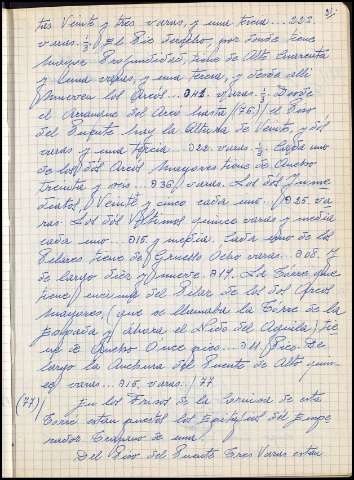 31.
tres Veinte y tres varas, y una tercia ... 222.
varas. 1/3 / El Rio por donde tiene
mayor Profundidad, tiene de Alto Cuarenta
y una varas, y una tercia, y desde alli
los Arcos... 41. varas. 1/3. Desde
el Arranque del Arco hasta /(76)/ el Piso
del Puente hay la Altura de Veinte, y dós
varas y una tercia... 22. varas. 1/3. Cada uno
de los dós Arcos mayores tiene de Ancho
treinta y seis... 36/ varas. Los dós
Veinte y cinco cada uno. / 25. va
ras. Los dós Ultimos quince varas y media
cada uno... 15. y media. Cada uno de los
Pilares tiene de Grueso Ocho varas... 08. y
de largo diéz y nueve. 19. La Torre que
tiene/ encima del Pilar de los dos Arcos
mayores, (que se llamaba la Torre de la
Espada y ahora el Nido del Aguila) tie
ne de Ancho Once pies... 11/ Pies. De
largo la Anchura del Puente de Alto quin
ce varas... 15. varas. / 77
(77)/ En los Frisos de la Cornisa de esta
Torre estan puestos los Epitafios del Empe
rador Trajano de una/
Del Piso del Puente Tres Varas estan